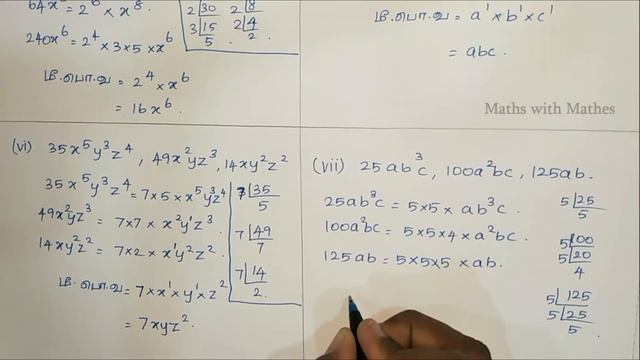 64x⁶ = 2⁶ × x⁸.
240x⁶ = 2⁴ × 3 × 5 × x⁶
மீ.பொ.வ = 2⁴ × x⁶
= 16x⁶.
2 30
3 15
5.
2 8
2 4
2.
மீ.பொ.வ = a¹ × b¹ × c¹
= abc.
Maths with Mathes
(vi) 35x⁵y³z⁴, 49x²yz³, 14xy²z²
35x⁵y³z⁴ = 7 × 5 × x⁵y³z⁴
49x²yz³ = 7 × 7 × x²y¹z³.
14xy²z² = 7 × 2 × x¹y²z².
மீ.பொ.வ = 7 × x¹ × y¹ × z²
= 7xyz².
7 35
5
7 49
7
7 14
2.
(vii) 25ab³c, 100a²bc, 125ab.
25ab³c = 5 × 5 × ab³c.
100a²bc = 5 × 5 × 4 × a²bc.
125ab = 5 × 5 × 5 × ab.
5 25
5
5 100
5 20
4
5 125
5 25
5.